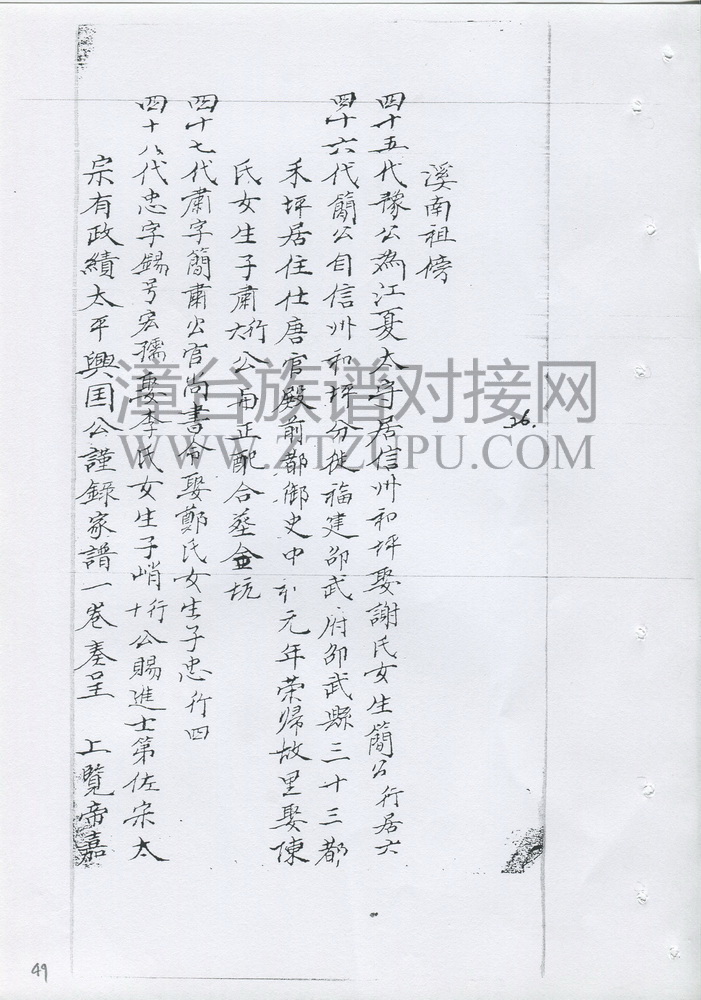 溪南祖傍
四十五代豫公為江夏太守居信州和坪娶謝氏女生簡公行居六
四十六代簡公自信州和坪分徙福建邵武府邵武縣三十三都
禾坪居住仕唐官殿前都御史中和元年荣歸故里娶陳
氏女生子肅行六公用正配合墓金坑
四十七代肅字簡肅公官尚書令娶鄭氏女生子忠行四
四十八代忠字錫号宏孺娶李氏女生子峭行十公賜進士第佐宋太
宗有政績太平興国公謹録家譜一卷奏呈 上覽帝嘉
26.
漳台族谱对接网
WWW.ZTZUPU.COM
49